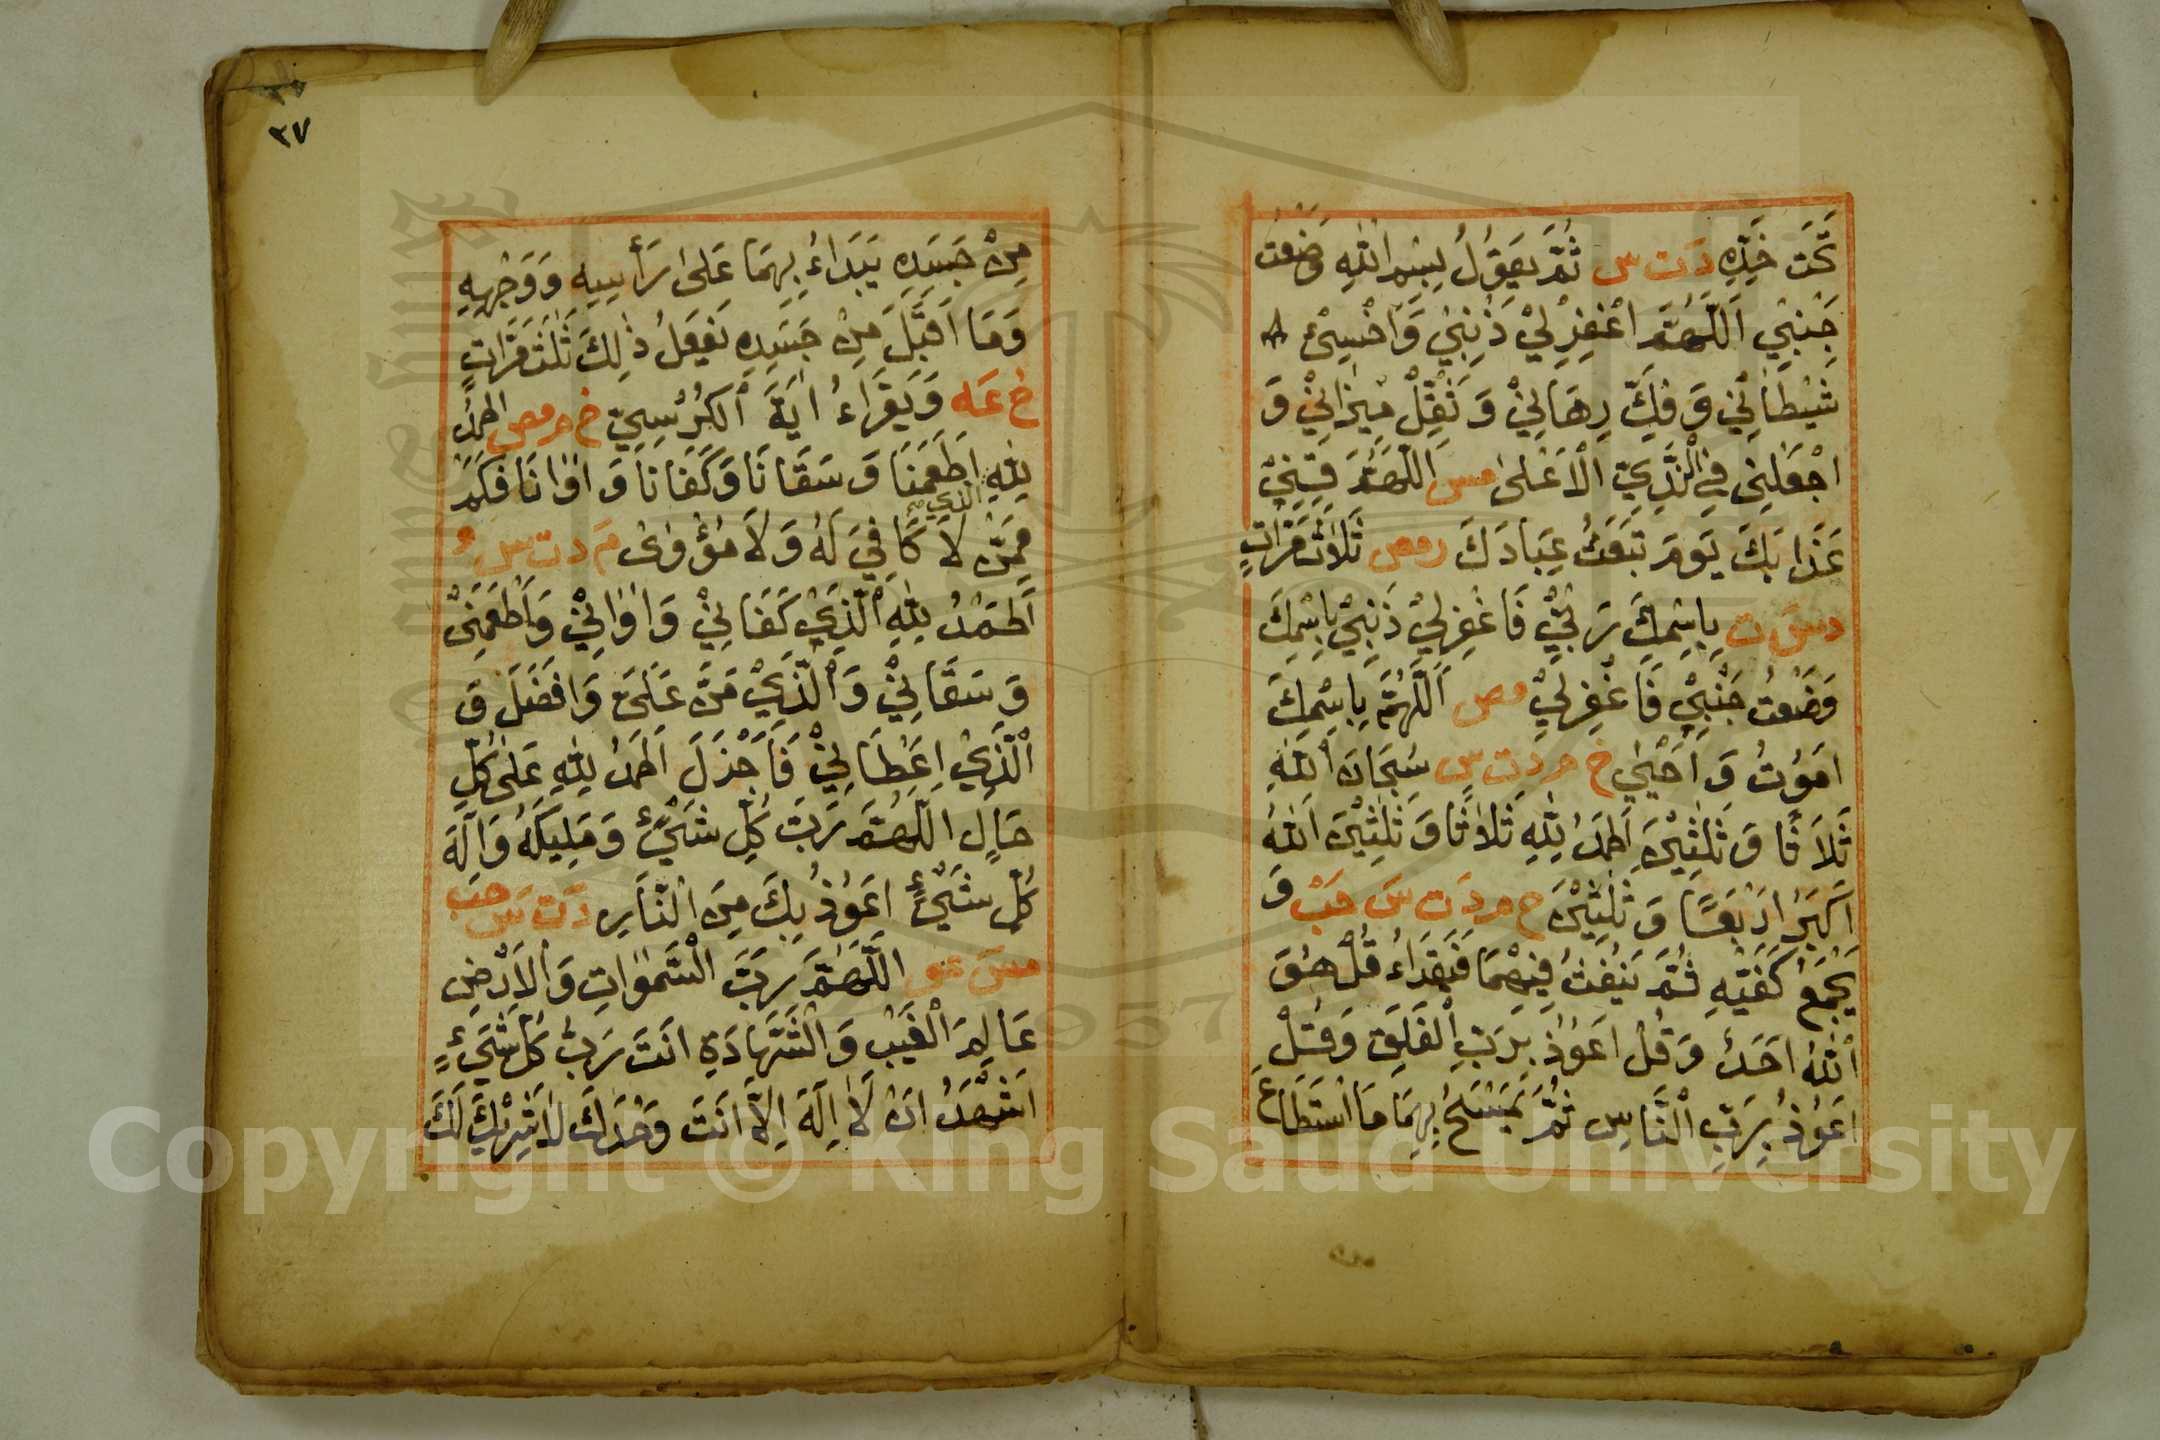 تَحْتَ خَدِّهِ دَ ت س ثُمَّ يَقُوْلُ بِسْمِ اللّٰهِ وَضَعْتُ
جَنْبِيْ اَللّٰهُمَّ اغْفِرْ لِيْ ذَنْبِيْ وَاَخْسِئْ
شَيْطَانِيْ وَفُكَّ رِهَانِيْ وَثَقِّلْ مِيْزَانِيْ وَ
اجْعَلْنِيْ فِي النَّدِيِّ الْاَعْلٰى مس اَللّٰهُمَّ قِنِيْ
عَذَابَكَ يَوْمَ تَبْعَثُ عِبَادَكَ ر مص ثَلَاثَ مَرَّاتٍ
د س ت بِاسْمِكَ رَبِّيْ فَاغْفِرْ لِيْ ذَنْبِيْ بِاسْمِكَ
وَضَعْتُ جَنْبِيْ فَاغْفِرْ لِيْ مص اَللّٰهُمَّ بِاسْمِكَ
اَمُوْتُ وَ اَحْيٰي خ م د ت س سُبْحَانَ اللّٰهِ
ثَلَاثًا وَ ثَلٰثِيْنَ اَلْحَمْدُ لِلّٰهِ ثَلَاثًا وَ ثَلٰثِيْنَ اَللّٰهُ
اَكْبَرُ اَرْبَعًا وَ ثَلٰثِيْنَ خ م دَ ت سَ حَبْ وَ
يَجْمَعُ كَفَّيْهِ ثُمَّ يَنْفُثُ فِيْهِمَا فَيَقْرَاءُ قُلْ هُوَ
اللّٰهُ اَحَدٌ وَ قُلْ اَعُوْذُ بِرَبِّ الْفَلَقِ وَ قُلْ
اَعُوْذُ بِرَبِّ النَّاسِ ثُمَّ يَمْسَحُ بِهِمَا مَا اسْتَطَاعَ
٣٧
مِنْ جَسَدِهِ يَبْدَاءُ بِهِمَا عَلٰى رَأْسِهِ وَ وَجْهِهِ
وَمَا اَقْبَلَ مِنْ جَسَدِهِ يَفْعَلُ ذٰلِكَ ثَلٰثَ مَرَّاتٍ
خ عَه وَيَقْرَاءُ اٰيَةَ الْكُرْسِيِّ خ م مص اَلْحَمْدُ
لِلّٰهِ الَّذِيْ اَطْعَمَنَا وَ سَقَانَا وَ كَفَانَا وَ اٰوَانَا فَكَمْ
مِمَّنْ لَا كَافِيَ لَهُ وَلَا مُؤْوٰى مَ د ت س
اَلْحَمْدُ لِلّٰهِ الَّذِيْ كَفَانِيْ وَ اٰوَانِيْ وَاَطْعَمَنِيْ
وَ سَقَانِيْ وَالَّذِيْ مَنَّ عَلَيَّ وَاَفْضَلَ وَ
الَّذِيْ اَعْطَانِيْ فَاَجْزَلَ اَلْحَمْدُ لِلّٰهِ عَلٰى كُلِّ
حَالٍ اَللّٰهُمَّ رَبَّ كُلِّ شَيْءٍ وَ مَلِيْكَهُ وَاِلٰهَ
كُلِّ شَيْءٍ اَعُوْذُ بِكَ مِنَ النَّارِ دَ ت سَ حب
مسَ عو اَللّٰهُمَّ رَبَّ السَّمٰوَاتِ وَالْاَرْضِ
عَالِمَ الْغَيْبِ وَالشَّهَادَةِ اَنْتَ رَبُّ كُلِّ شَيْءٍ
اَشْهَدُ اَنْ لَا اِلٰهَ اِلَّا اَنْتَ وَحْدَكَ لَا شَرِيْكَ لَكَ
Copyright © King Saud University
1957